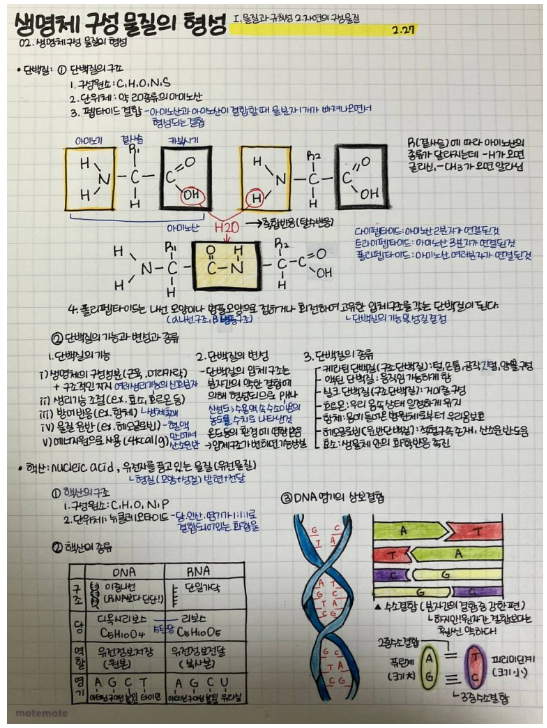 생명체 구성 물질의 형성
I. 물질과 규칙성 2. 자연의 구성물질
2.27
02. 생명체 구성 물질의 형성
• 단백질: ① 단백질의 구조
1. 구성원소: C, H, O, N, S
2. 단위체: 약 20종류의 아미노산
3. 펩타이드 결합 - 아미노산과 아미노산이 결합할 때 물분자 1개가 빠져나오면서
형성되는 결합
아미노기 곁사슬 카복시기
R1
H
N
C
C
O
OH
H
H
H
N
R2
C
C
O
OH
H
H
R(곁사슬)에 따라 아미노산의
종류가 달라지는데 -H가 오면
글리신, -CH3가 오면 알라닌
아미노산
H2O
→ 축합반응(탈수반응)
다이펩타이드: 아미노산 2분자가 연결된 것
트라이펩타이드: 아미노산 3분자가 연결된 것
폴리펩타이드: 아미노산 여러분자가 연결된 것
H R1 O H R2 O
H N C C N C C
H H OH
4. 폴리펩타이드는 나선 모양이나 병풍모양으로 접히거나 회전하여 고유한 입체구조를 갖는 단백질이 된다.
단백질의 기능 및 성질 결정
② 단백질의 기능과 변성과 종류
1. 단백질의 기능
i) 생명체의 구성성분(근육, 머리카락)
+ 구조적인 지지
ii) 생리기능 조절(ex. 효소, 호르몬 등)
iii) 방어반응(ex. 항체)
iv) 물질 운반(ex. 헤모글로빈)
v) 에너지원으로 사용(4kcal/g)
2. 단백질의 변성
- 단백질의 입체구조는
분자간의 약한 결합에
의해 형성되므로 pH나
온도등의 환경에 영향받음
→ 입체구조가 변하면 기능상실
3. 단백질의 종류
케라틴 단백질(구조단백질): 털, 손톱,
액틴 단백질: 움직임 가능하게 함
실크 단백질(구조단백질): 거미줄 구성
호르몬: 우리 몸 속 상태 일정하게 유지
항체:
헤모글로빈(운반단백질): 적혈구 속 존재, 산소운반 도움
효소: 생물체 안의 화학반응 촉진
• 핵산: nucleic acid, 유전자를 품고 있는 물질(유전물질)
① 핵산의 구조
1. 구성원소: C, H, O, N, P
2. 단위체: 뉴클레오타이드 - 당, 인산, 염기가 1:1:1로
결합되어있는 화합물
② 핵산의 종류
DNA RNA
구조 이중나선 단일가닥
(RNA보다 단단!)
당 디옥시리보스 리보스
C5H10O4 5탄당 C5H10O5
역할 유전정보저장 유전정보전달
(원본) (복사본)
염기 A G C T A G C U
아데닌 구아닌 사이토신 타이민
③ DNA 염기의 상보결합
G C
T A
A T
T A
C G
G C
T A
C G
A T
T A
C G
G C
▲ 수소결합(분자간의 결합중 강한 편)
2중수소결합
퓨린계
(크기 大)
A = T
G ≡ C
피리미딘계
(크기 小)
3중수소결합
motemote